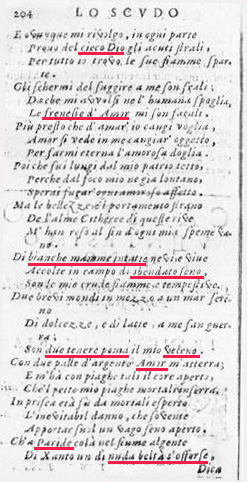 204 LO SCVDO
E ovunque mi rivolgo, in ogni parte
Provo del cieco Dio gli acuti strali,
Per tutto io trovo le sue fiamme spar-
te.
Gli schermi del fuggire a me son frali;
Dache mi avvolsi ne l'humana spoglia,
Le frenesie d'Amor mi son fatali.
Più presto che d'amar, io cangi voglia,
Amor si vede in me cangiar' oggetto,
Per farmi eterna l'amorosa doglia.
Poiche fui lungi dal mio patrio tetto,
Perche dal foco mio ne gia lontano,
Sperai fugar
Ma le bellezze, e'l portamento strano
De l'alme Citheree di queste rive
M' han reso al fin d'ogni mia speme va-
no.
Di bianche mamme intatte nevi vive
Accolte in campo di sbendato seno,
Son le mie crude fiamme
Due brevi mondi in mezzo a un mar sere-
no
Di dolcezze, e di latte, a me fan guer-
ra;
Son due tenere poma il mio veleno.
Con due palle d'argento Amor m'atterra;
E m'hà con piaghe tali il core aperto,
Che'l petto mio piaghe mortali rinserra.
In prisca età fu da mortali esperto
L'inevitabil danno, che sovente
Apportar suol un vago seno aperto.
Ch'a Paride colà nel fiume algente
Di Xanto un dì nuda beltà s'offerse,
Dica